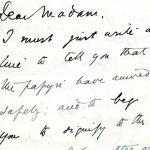 Dear Madam,
I must just write a
line to tell you that
the papyri have arrived
safely; and to beg
you to signify to the